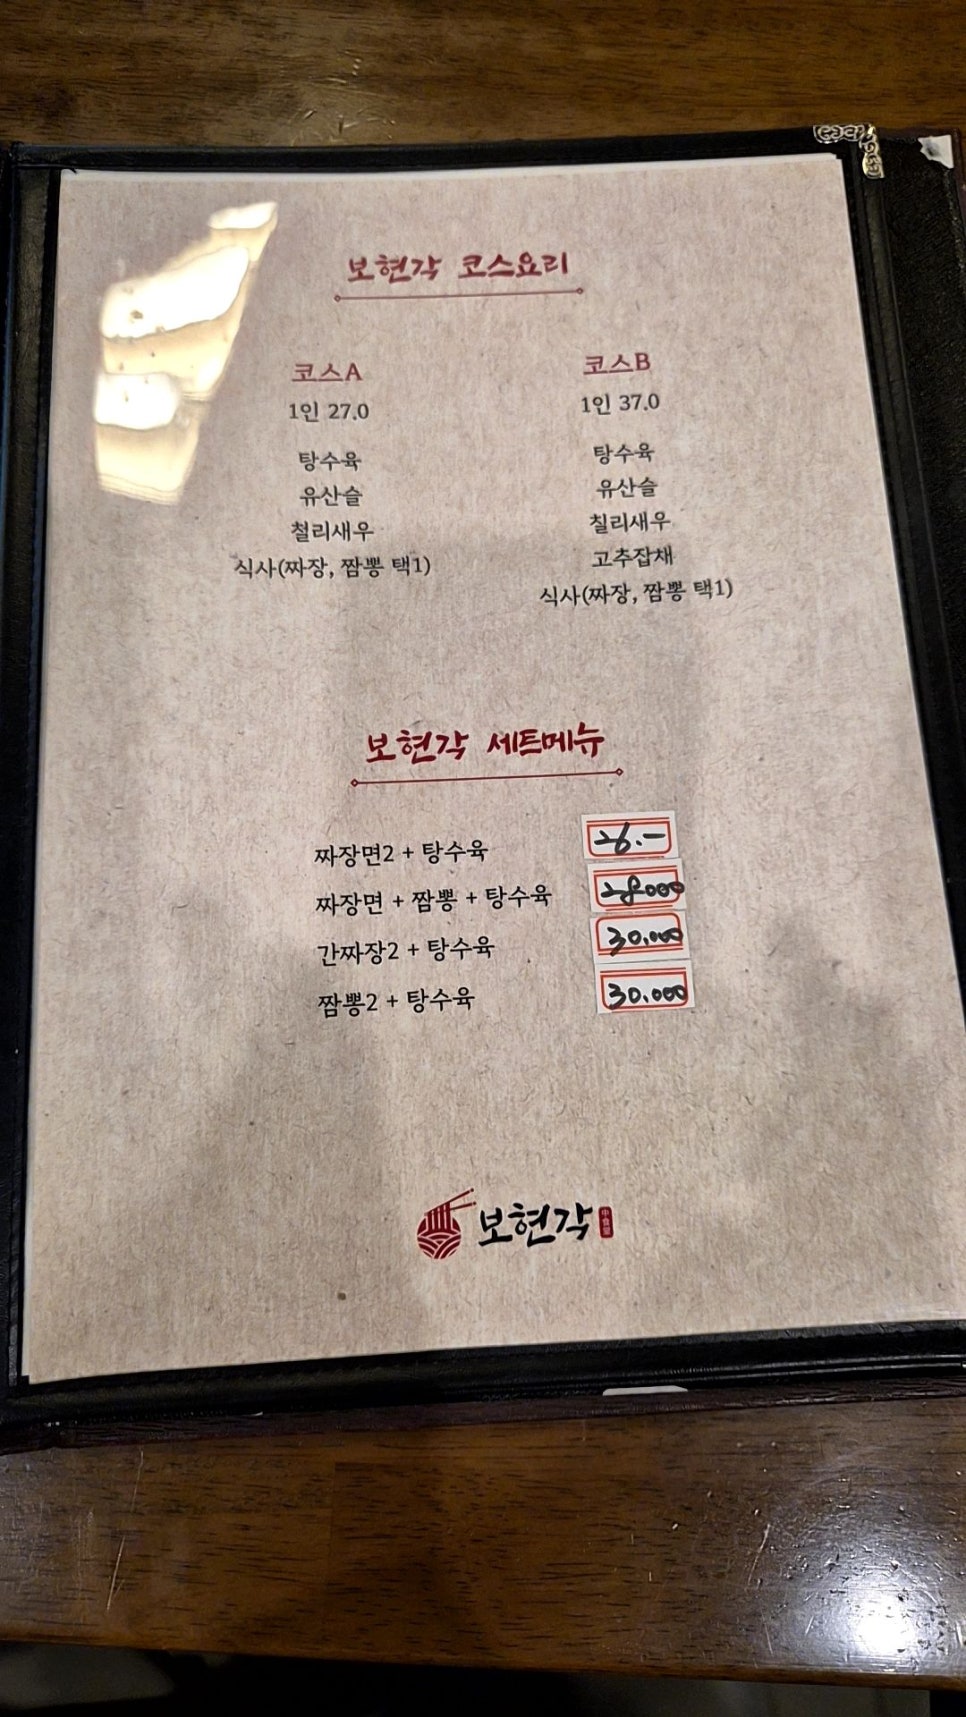 보현각 코스요리
코스A
1인 27.0
탕수육
유산슬
철리새우
식사(짜장, 짬뽕 택1)
코스B
1인 37.0
탕수육
유산슬
칠리새우
고추잡채
식사(짜장, 짬뽕 택1)
보현각 세트메뉴
짜장면2 + 탕수육 26.-
짜장면 + 짬뽕 + 탕수육 28000
간짜장2 + 탕수육 30.000
짬뽕2 + 탕수육 30.000
보현각